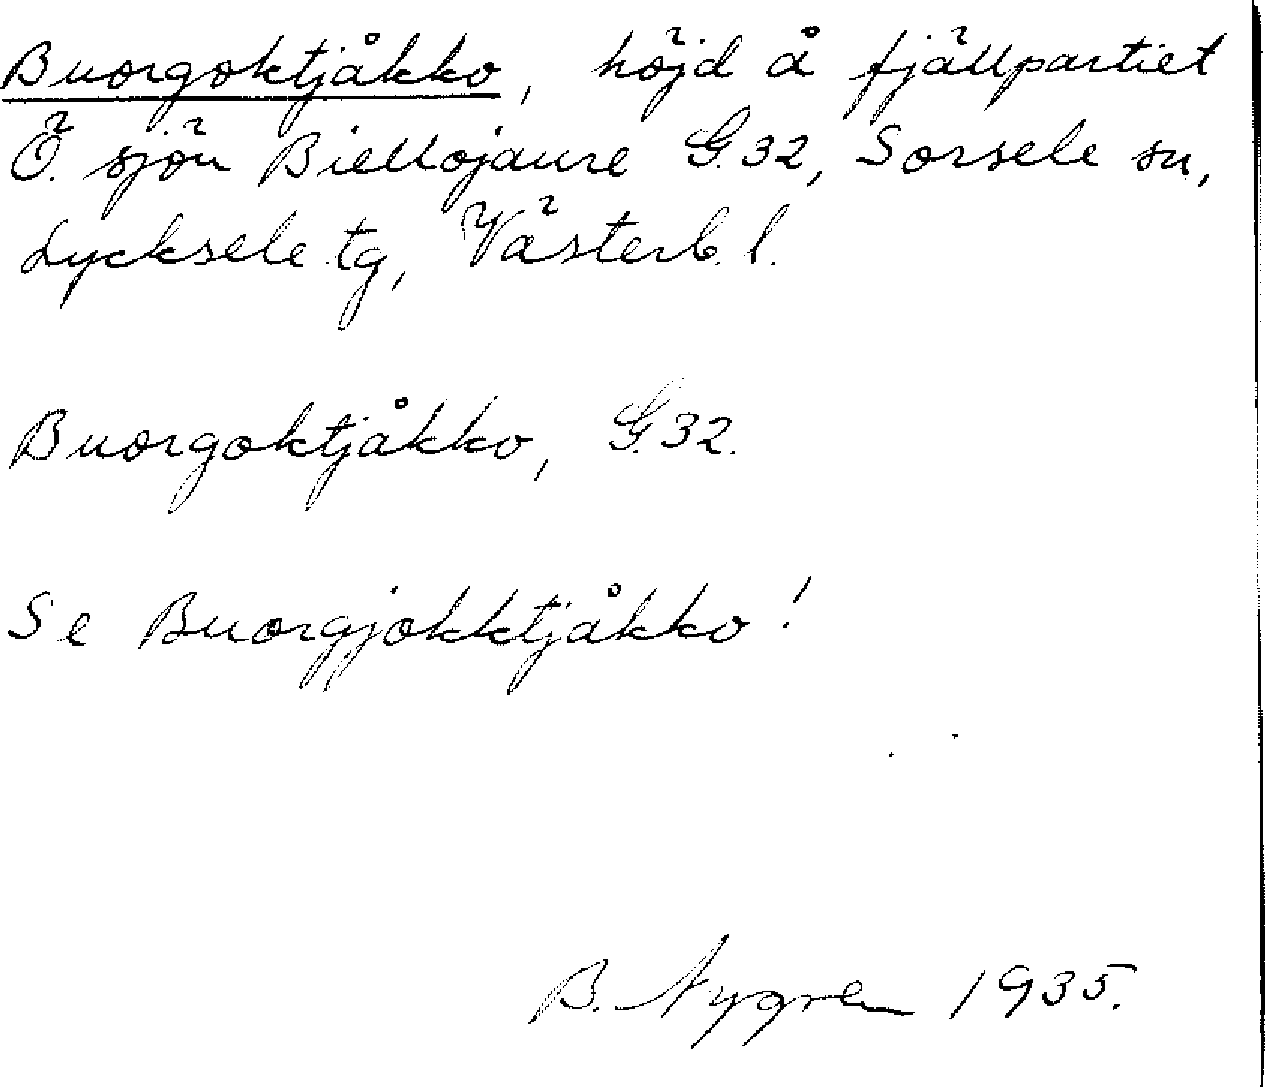 Buorgoktjåkko, höjd å fjällpartiet
Ö. sjön Biellojaure G.32, Sorsele sn,
Lycksele tg, Västerb. l.
Buorgoktjåkko, G.32.
Se Buorgjokktjåkko!
B. Nygren 1935.